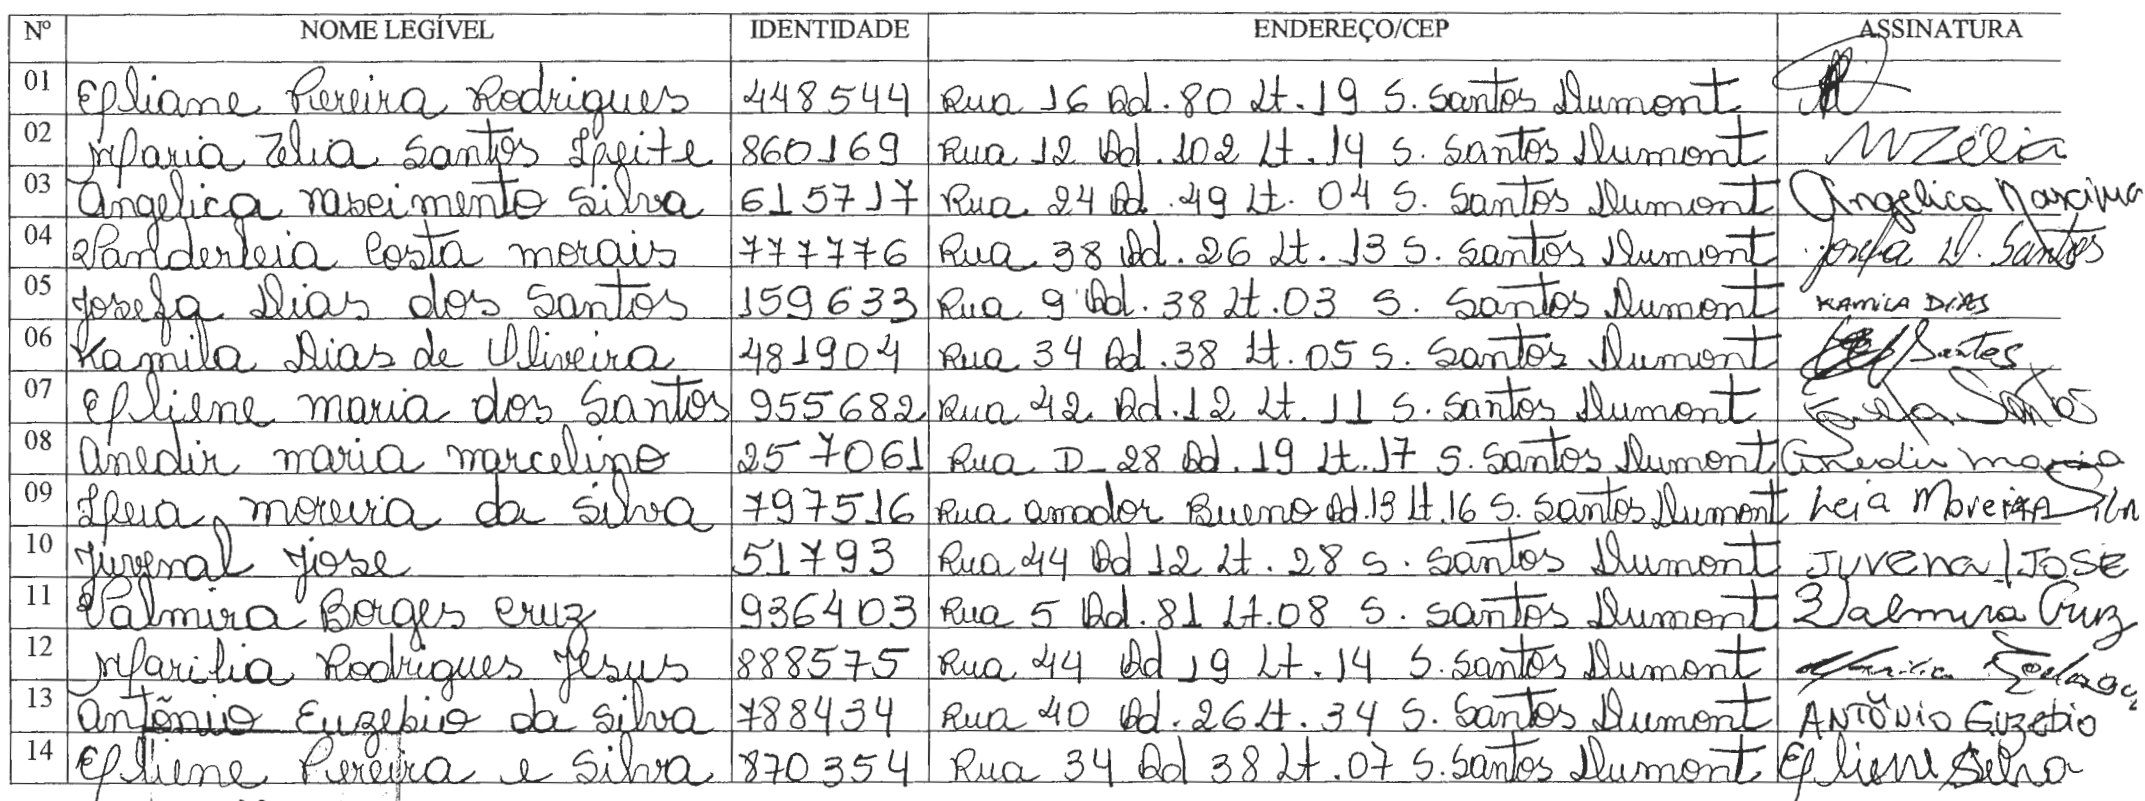 Nº NOME LEGÍVEL IDENTIDADE ENDEREÇO/CEP ASSINATURA
01 Eliane Pereira Rodrigues 448544 Rua 16 Qd. 80 Lt. 19 S. Santos Dumont
02 Maria Zelia Santos Leite 860169 Rua 12 Qd. 102 Lt. 14 S. Santos Dumont MZélia
03 Angelica nascimento Silva 615717 Rua 24 Qd. 49 Lt. 04 S. Santos Dumont Angelica
04 Vanderleia Costa morais 777776 Rua 38 Qd. 26 Lt. 13 S. Santos Dumont Josefa D. Santos
05 Josefa Dias dos Santos 159633 Rua 9 Qd. 38 Lt. 03 S. Santos Dumont KAMILA DIAS
06 Kamila Dias de Oliveira 481904 Rua 34 Qd. 38 Lt. 05 S. Santos Dumont Santos
07 Eliene maria dos Santos 955682 Rua 42 Qd. 12 Lt. 11 S. Santos Dumont Santos
08 Anedir maria marcelino 257061 Rua D-28 Qd. 19 Lt. 17 S. Santos Dumont Anedir maria
09 Leia moreira da Silva 797516 Rua amador Bueno Qd. 13 Lt. 16 S. Santos Dumont Leia Moreira Silva
10 Juvenal Jose 51793 Rua 44 Qd 12 Lt. 28 S. Santos Dumont JUVENAL JOSE
11 Valmira Borges Cruz 936403 Rua 5 Qd. 81 Lt. 08 S. Santos Dumont Valmira Cruz
12 Marilia Rodrigues Jesus 888575 Rua 44 Qd 19 Lt. 14 S. Santos Dumont Marilia
13 Antônio Euzebio da Silva 788434 Rua 40 Qd. 26 Lt. 34 S. Santos Dumont ANTÔNIO EUZEBIO
14 Eliene Pereira e Silva 870354 Rua 34 Qd 38 Lt. 07 S. Santos Dumont Eliene Silva